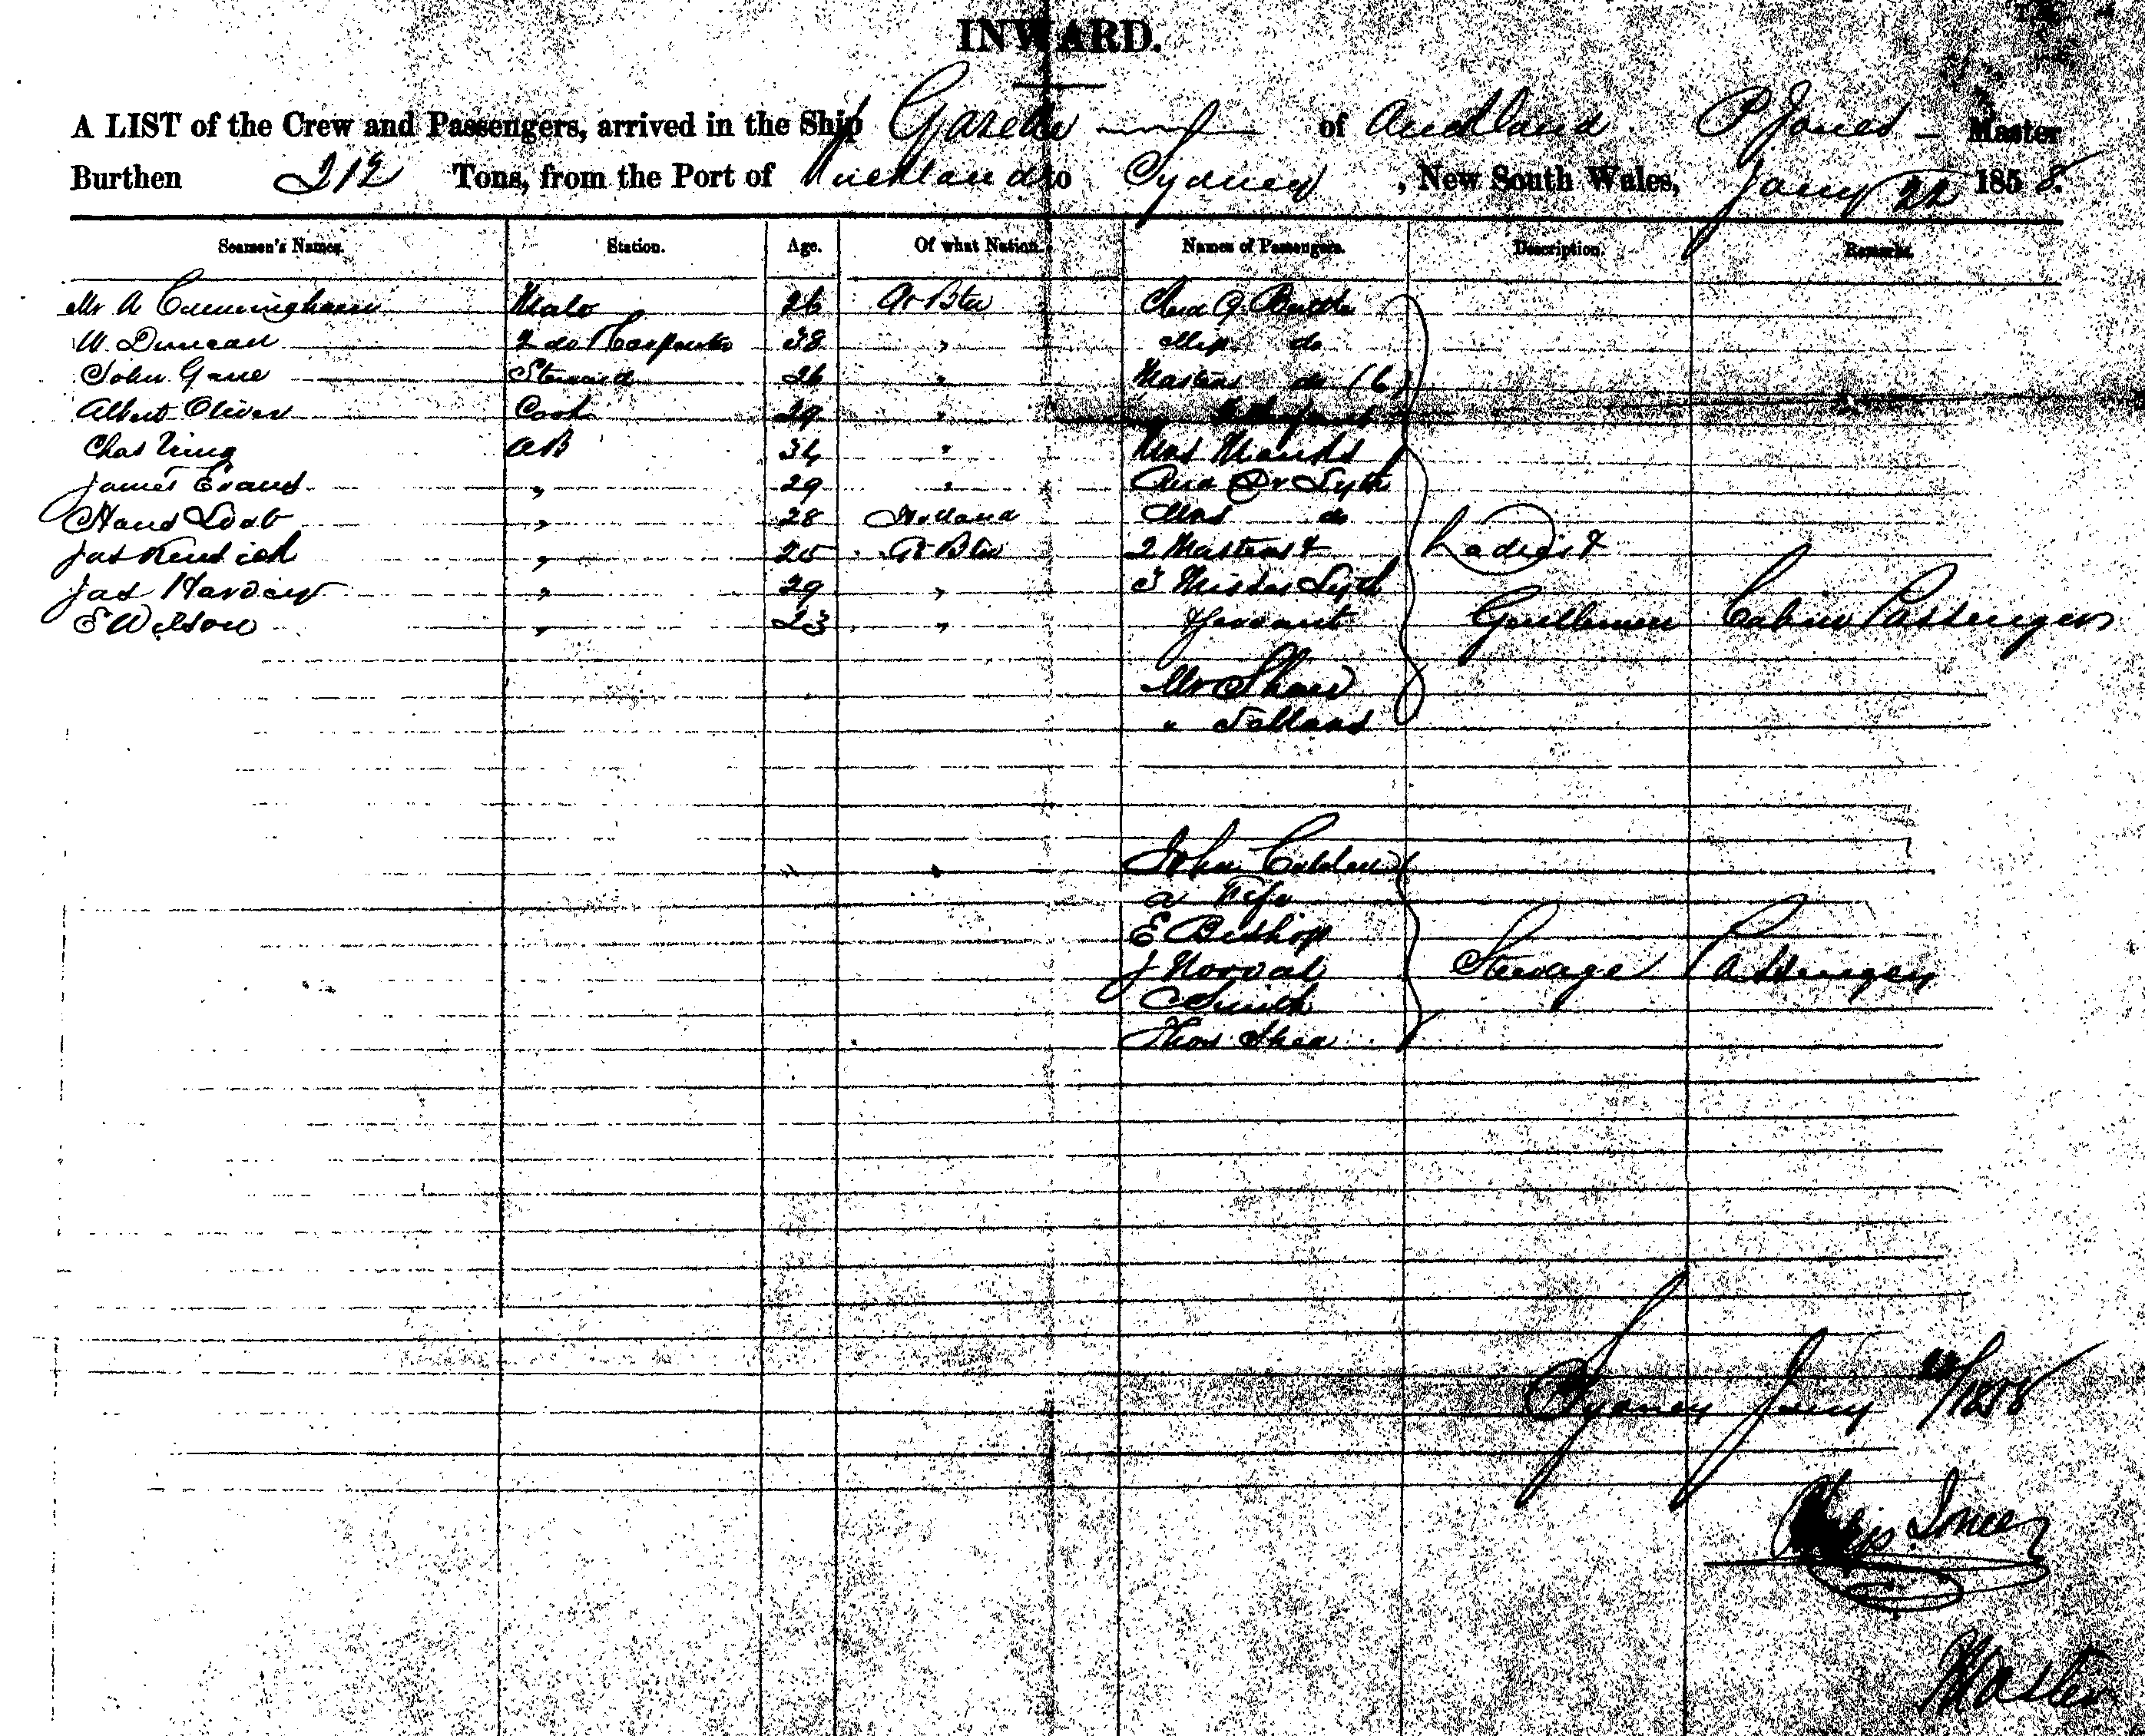 INWARD.
A LIST of the Crew and Passengers, arrived in the Ship Gazelle of Auckland P Jones Master
Burthen 212 Tons, from the Port of Auckland to Sydney, New South Wales, Jany 22 1858.
Seamen's Names. Station. Age. Of what Nation. Names of Passengers. Description. Remarks.
Mr A Cunningham Mate 26 Gr Btn Revd G. Buttle
W. Duncan 2 do & Carpenter 38 " Miss do
John Gane Steward 26 " Masters do (6)
Albert Oliver Cook 29 "
Chas King AB 34 " Mrs
James Evans " 29 " Revd Dr Lyth
Hans " 28 Holland Mrs do
Jas " 25 Gt Btn 2 Masters & Ladies &
Jas " 29 " 3 Misses Lyth
E Wilson " 23 " & servant Gentlemen Cabin Passengers
Mr Shaw
"
John
& Wife
E Bishop
J Norval Steerage Passengers
C Smith
Thos Shea
Sydney Jany 22/1858
Philip Jones
Master